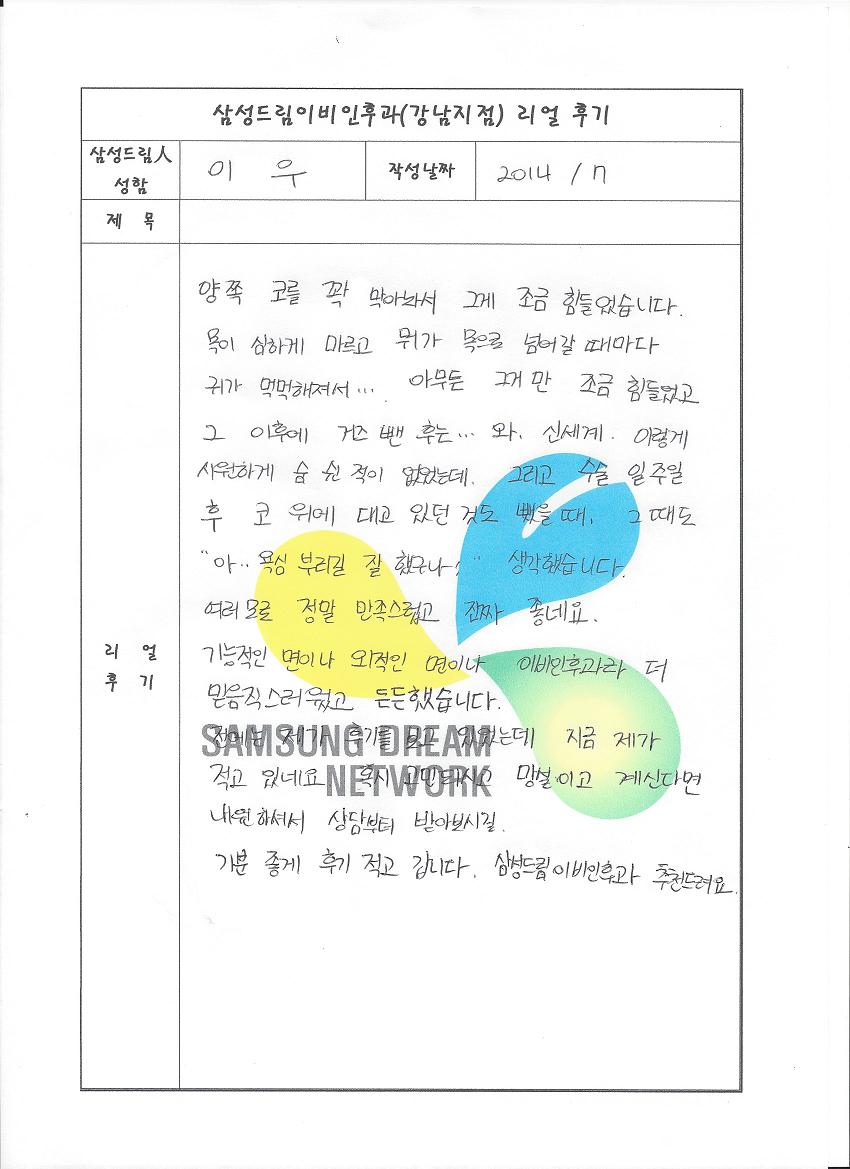 삼성드림이비인후과(강남지점) 리얼 후기
삼성드림人 성함
이 우
작성날짜
2014 / 7
제 목
리 얼 후 기
양쪽 코를 꽉 막아놔서 그게 조금 힘들었습니다.
목이 심하게 마르고 뭐가 목으로 넘어갈 때마다
귀가 먹먹해져서... 아무튼 그거만 조금 힘들었고
그 이후에 거즈 뺀 후는... 와, 신세계. 이렇게
시원하게 숨 쉰 적이 없었는데. 그리고 수술 일주일
후 코 위에 대고 있던 것도 뺐을 때, 그 때도
"아.. 욕심 부리길 잘 했구나!" 생각했습니다.
여러모로 정말 만족스럽고 진짜 좋네요.
기능적인 면이나 외적인 면이나 이비인후과라 더
믿음직스러웠고 든든했습니다.
전에는 제가 후기를 보고 있었는데 지금 제가
적고 있네요. 혹시 고민되시고 망설이고 계신다면
내원하셔서 상담부터 받아보시길.
기분 좋게 후기 적고 갑니다. 삼성드림이비인후과 추천드려요.
SAMSUNG DREAM
NETWORK